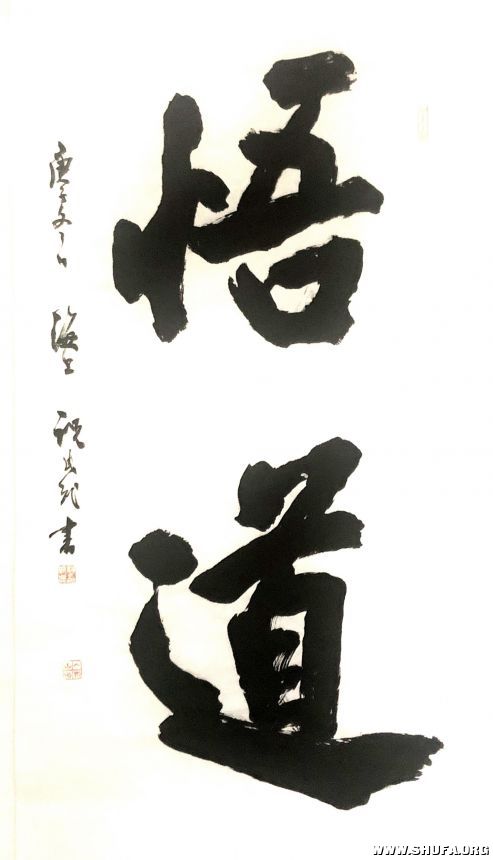 悟道
庚子 海上 书
WWW.SHUFA.ORG